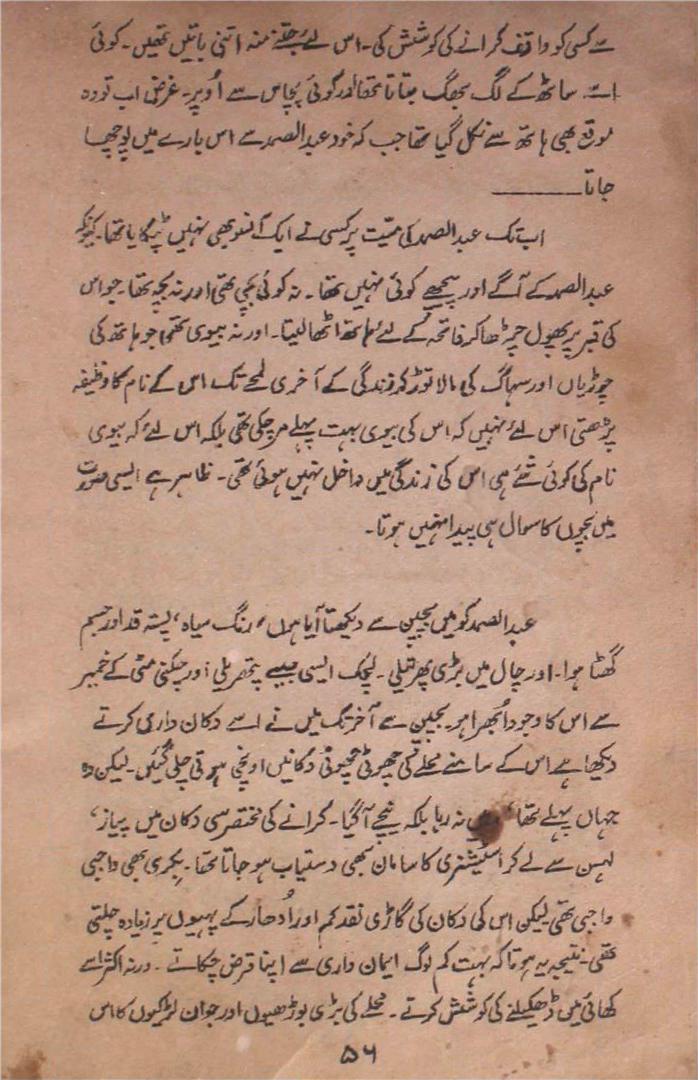 سے کسی کو واقف کرانے کی کوشش کی۔ اس لئے جتنے منہ اتنی باتیں تھیں۔ کوئی
اسے ساٹھ کے لگ بھگ بتاتا تھا اور کوئی پچاس سے اُوپر۔ غرض اب تو وہ
موقع بھی ہاتھ سے نکل گیا تھا جب کہ خود عبدالصمد سے اس بارے میں پوچھا
جاتا ــــــــــــ
اب تک عبدالصمد کی میت پر کسی نے ایک آنسو بھی نہیں ٹپکایا تھا۔ کیونکہ
عبدالصمد کے آگے اور پیچھے کوئی نہیں تھا۔ نہ کوئی بچی تھی اور نہ بچہ تھا۔ جو اس
کی قبر پر پھول چڑھا کر فاتحہ کے لئے ہاتھ اٹھا لیتا۔ اور نہ بیوی تھی جو ہاتھ کی
چوڑیاں اور سہاگ کی مالا توڑ کر زندگی کے آخری لمحے تک اس کے نام کا وظیفہ
پڑھتی اس لئے نہیں کہ اس کی بیوی بہت پہلے مر چکی تھی بلکہ اس لئے کہ بیوی
نام کی کوئی شئے ہی اس کی زندگی میں داخل نہیں ہوئی تھی۔ ظاہر ہے ایسی صورت
میں بچوں کا سوال ہی پیدا نہیں ہوتا۔
عبدالصمد کو میں بچپن سے دیکھتا آیا ہوں، رنگ سیاہ، پستہ قد اور جسم
گھٹا ہوا۔ اور چال میں بڑی پھرتیلی۔ لچک ایسی جیسے پتھریلی اور چکنی مٹی کے خمیر
سے اس کا وجود اُبھرا ہو۔ بچپن سے آخر تک میں نے اسے دکان داری کرتے
دیکھا ہے اس کے سامنے محلے کی چھوٹی چھوٹی دکانیں اونچی ہوتی چلی گئیں۔ لیکن وہ
جہاں پہلے تھا، نہ رہا بلکہ نیچے آگیا۔ کرانے کی مختصر سی دکان میں پیاز،
لہسن سے لے کر اسٹیشنری کا سامان سبھی دستیاب ہو جاتا تھا۔ بکری بھی واجبی
واجبی تھی لیکن اس کی دکان کی گاڑی نقد کم اور اُدھار کے پہیوں پر زیادہ چلتی
تھی۔ نتیجہ یہ ہوتا کہ بہت کم لوگ ایمان داری سے اپنا قرض چکاتے۔ ورنہ اکثر اسے
کھائی میں ڈھکیلنے کی کوشش کرتے۔ محلے کی بڑی بوڑھیوں اور جوان لڑکیوں کا اس
۵۶